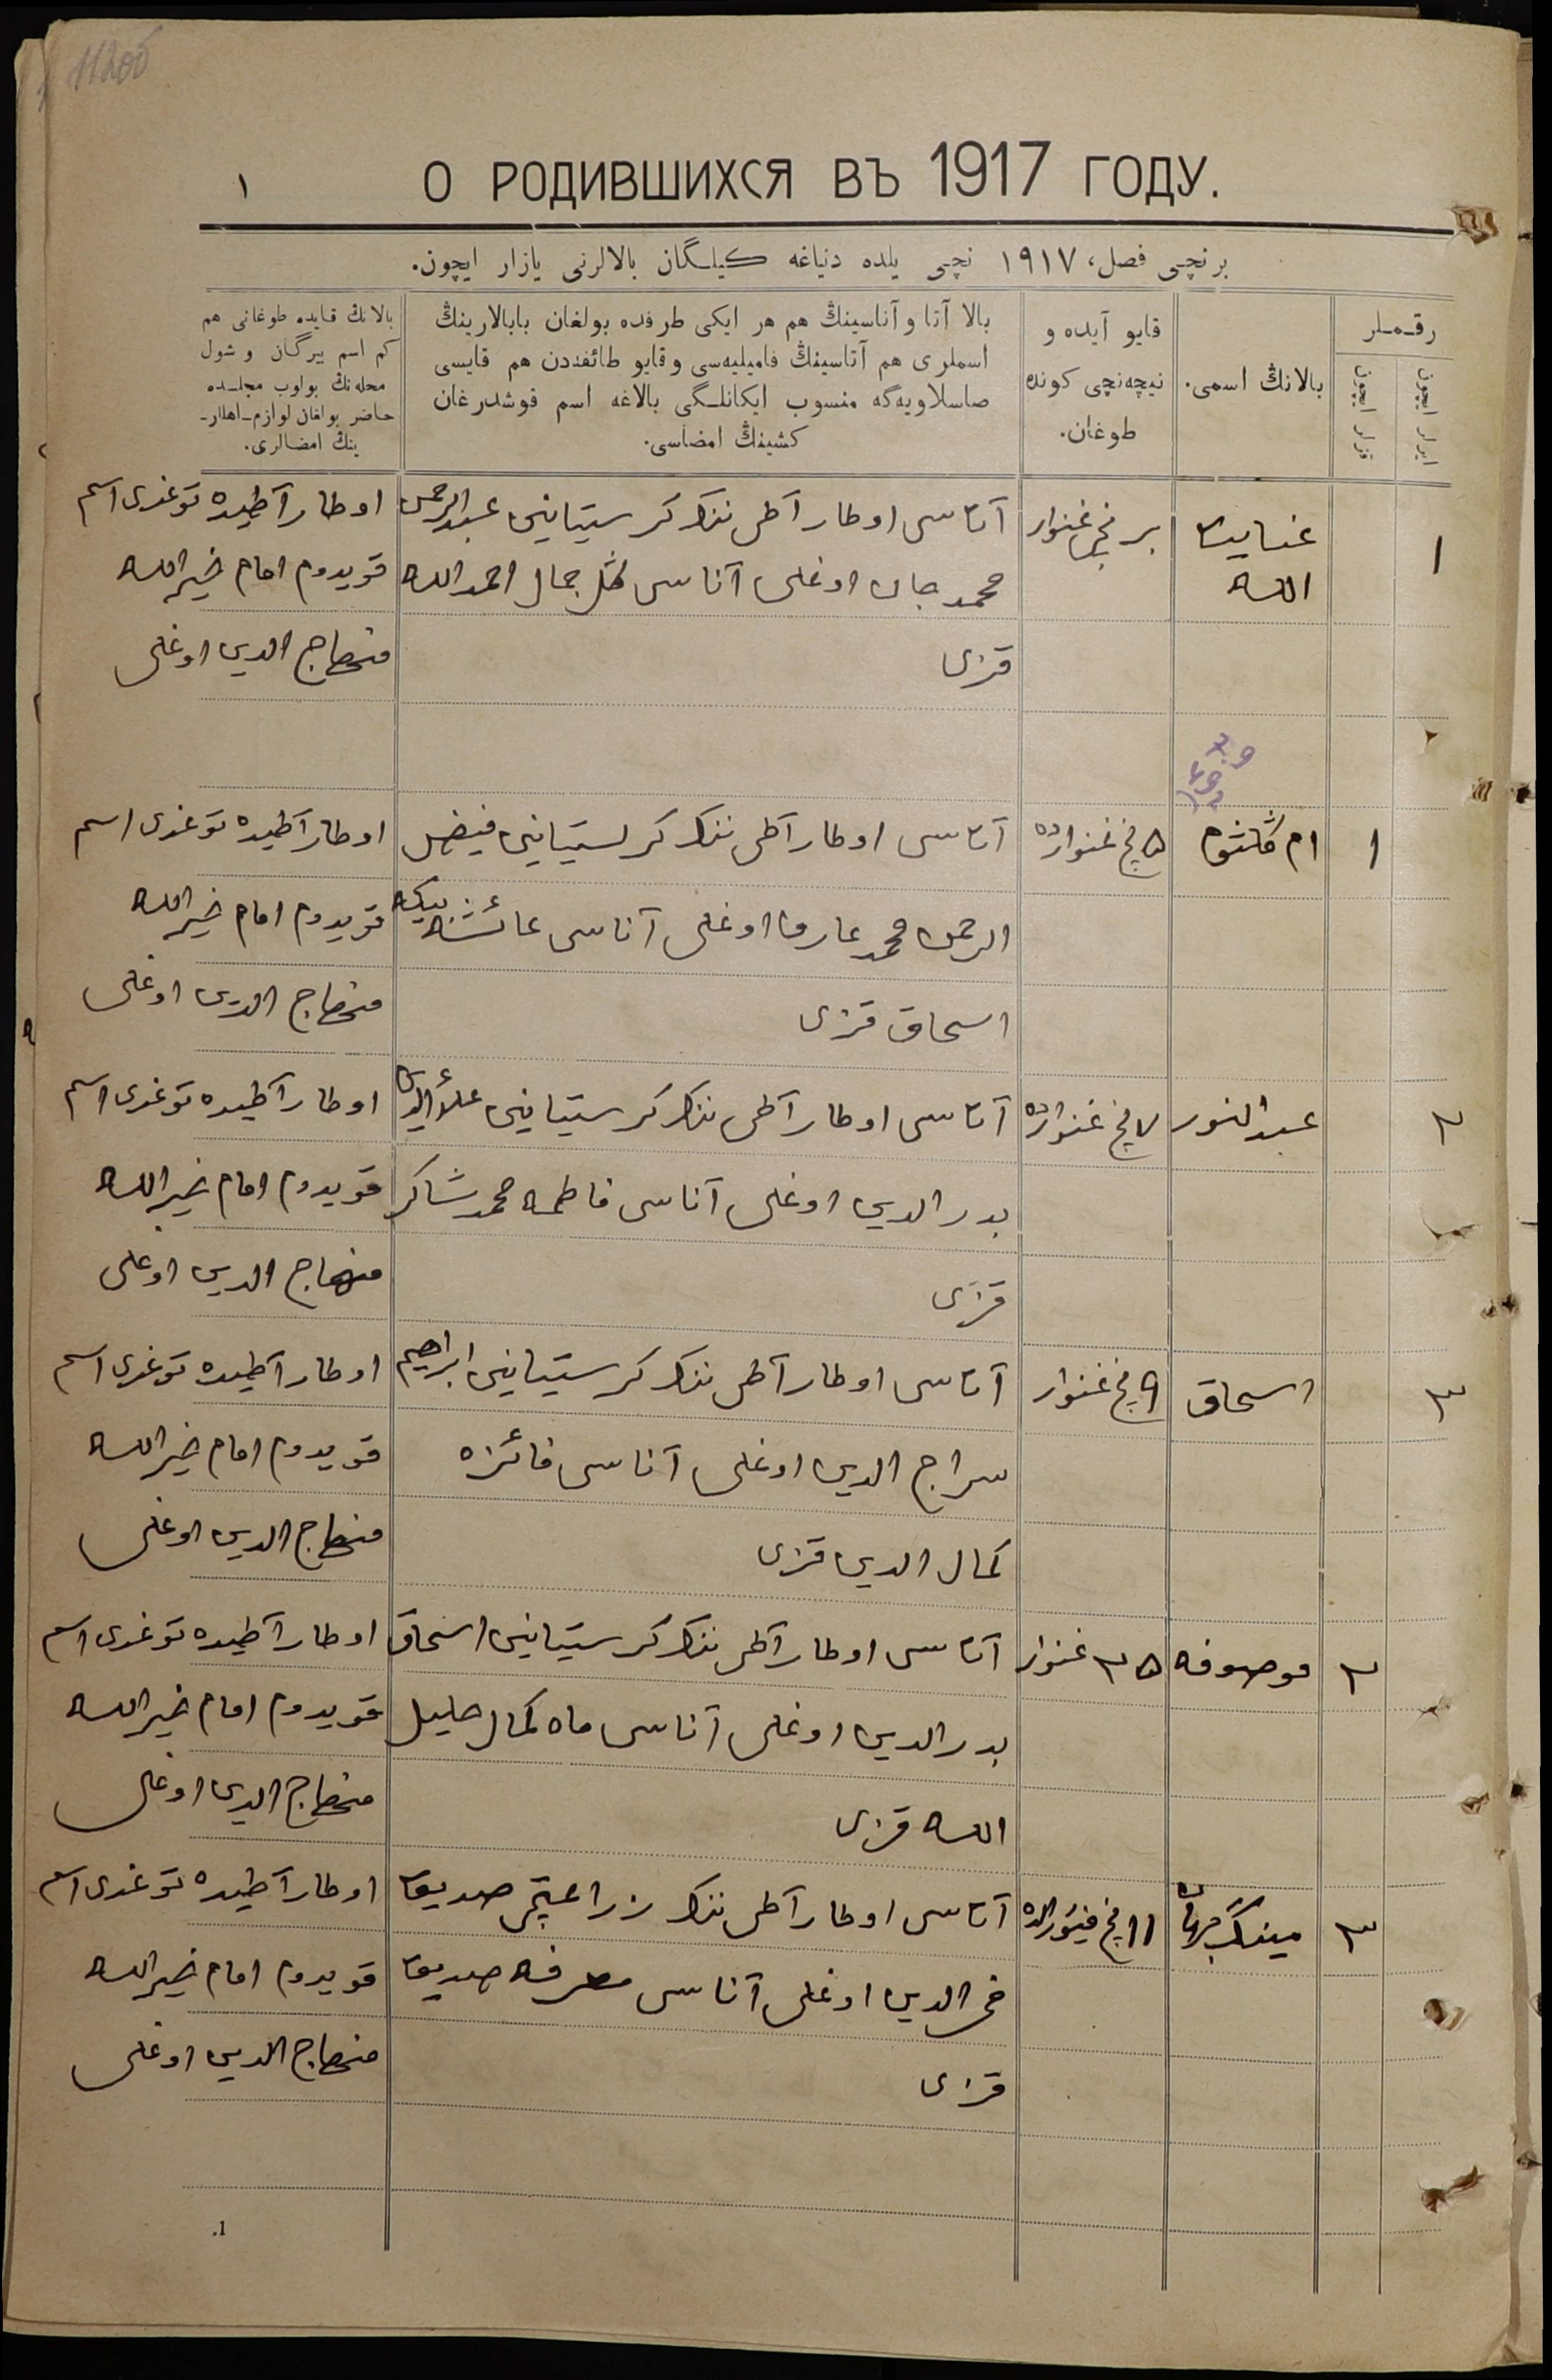 О РОДИВШИХСЯ ВЪ 1917 ГОДУ.
١
برنچی فصل، ١٩١٧ نچی یلده دنیاغه کیلـگان بالالرنی یازار ایچون.
رقـمـلر
ایرلر ایچون
قزلر ایچون
بالانڭ اسمی.
قایو آیده و
نیچه‌نچی کونده
طوغان.
بالا آتا و آناسینڭ هم هر ایکی طرفده بولغان بابالارینڭ
اسملری هم آتاسینڭ فامیلیه‌سی و قایو طائفه‌دن هم قایسی
صاسلاویه‌گه منسوب ایکانلـگی بالاغه اسم قوشدرغان
کشینڭ امضاسی.
بالانڭ قایده طوغانی هم
کم اسم بیرگان و شول
محله‌نڭ بولوب مجلـسده
حاضر بولغان لوازم-اهللر-
ینڭ امضالری.
١
عنایت
الله
برنچی غنوار
آتاسی اوطار آطی ننڭ کرستیانینی عبدالرحمن
محمد جان اوغلی آناسی گل جمال احمدالله
قزی
اوطار آطیده توغدی اسم
قویدوم امام خیرالله
منهاج الدین اوغلی
١
ام کلثوم
٥ نچی غنوارده
آتاسی اوطار آطی ننڭ کرستیانینی فیض
الرحمن محمد عارف اوغلی آناسی عائشه بیکه
اسحاق قزی
اوطار آطیده توغدی اسم
قویدوم امام خیرالله
منهاج الدین اوغلی
٢
عبدالنور
٧ نچی غنوارده
آتاسی اوطار آطی ننڭ کرستیانینی علاءالدین
بدرالدین اوغلی آناسی فاطمه محمد شاکر
قزی
اوطار آطیده توغدی اسم
قویدوم امام خیرالله
منهاج الدین اوغلی
٣
اسحاق
٩ نچی غنوار
آتاسی اوطار آطی ننڭ کرستیانینی ابراهیم
سراج الدین اوغلی آناسی فائزه
کمال الدین قزی
اوطار آطیده توغدی اسم
قویدوم امام خیرالله
منهاج الدین اوغلی
٢
موصوفه
٢٥ غنوار
آتاسی اوطار آطی ننڭ کرستیانینی اسحاق
بدرالدین اوغلی آناسی ماه کمال خلیل
الله قزی
اوطار آطیده توغدی اسم
قویدوم امام خیرالله
منهاج الدین اوغلی
٣
مینگ جهان
١١ نچی فیورالده
آتاسی اوطار آطی ننڭ زراعتچی صدیق
فخرالدین اوغلی آناسی معرفه صدیق
قزی
اوطار آطیده توغدی اسم
قویدوم امام خیرالله
منهاج الدین اوغلی
1.